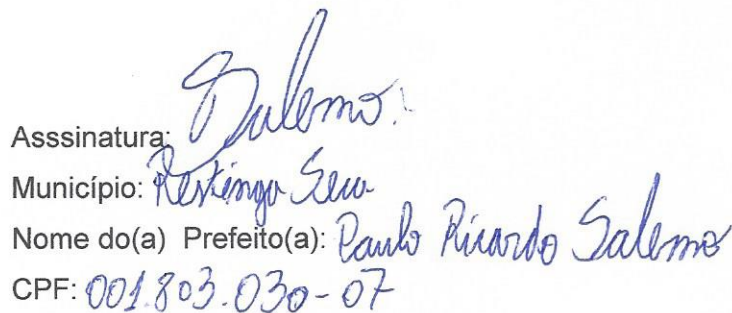 Asssinatura: Salerno.
Município: Restinga Seca
Nome do(a) Prefeito(a): Paulo Ricardo Salerno
CPF: 001.803.030-07